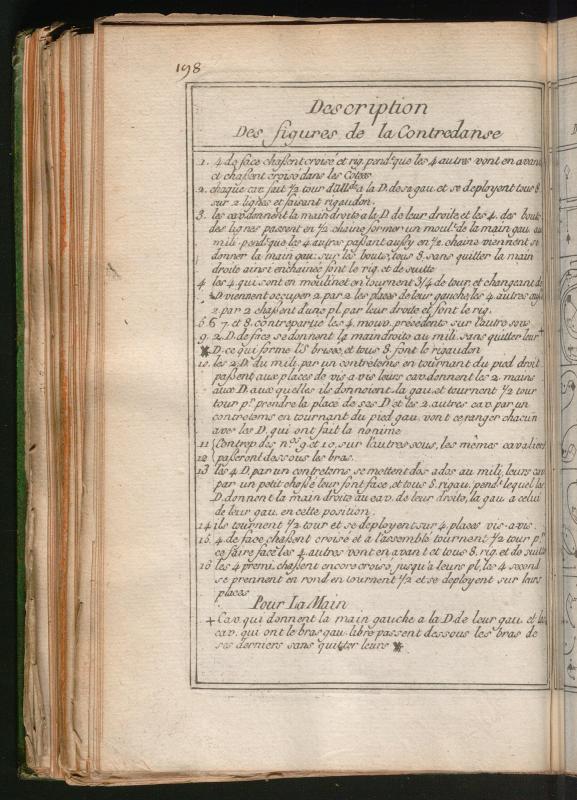 198
Description
Des figures de la Contredanse
1. 4 de face chaßent croisé et rig. pendt. que les 4 autres vont en avant
et chaßent croisé dans les Cotées
2. chaque cav. fait 1/2 tour d'Allde a la D. de sa gau. et se deployent tous 8.
sur 2 lignes et faisant rigaudon.
3. les cav. donnent la main droite a la D. de leur droite, et les 4. des bouts
des lignes passent en 1/2 chaine, former un moult. de la main gau. au
mili. pendt. que les 4 autres paßant außy en 1/2 chaine viennent se
donner la main gau. sur les bouts, tous 8. sans quitter la main
droite ainsi enchainée font le rig. et de suitte
4 les 4. qui sont en moulinet en tournent 3/4 de tour, et changeant de
D. viennent occuper 2 par 2 les places de leur gauche, les 4 autres außy
2 par 2 chaßent d'une pl. par leur droite et font le rig.
5. 6 7. et 8. contrepartie les 4. mouv. precedents sur l'autre sens
9 2. D. de face se donnent la main droite au mili. sans quitter leur +
D. ce qui forme l'S brisée, et tous 8. font le rigaudon
10. les 2 D. du mili. par un contretems en tournant du pied droit
paßent aux places de vis a vis leurs cav. donnent les 2 mains
aux D. aux quelles ils donnoient la gau. et tournent 1/2 tour
tour pr. prendre la place de ses D. et les 2 autres cav. par un
contretems en tournant du pied gau. vont se ranger chacun
avec les D. qui ont fait la
11 Contrep. des nos. 9 et 10, sur l'autres sens, les mêmes cavaliers
12 paßeront dessous les bras.
13 les 4 D. par un contretems, se mettent dos a dos au mili. leurs cav
par un petit chaßé leur font face, et tous 8. rigau. pendt. lequel les
D. donnent la main droite au cav. de leur droite, la gau. a celui
de leur gau. en cette position.
14. ils tournent 1/2 tour et se deployent sur 4. places vis-avis.
15. 4. de face chaßent croisé et a l'assemblé tournent 1/2 tour pr.
ce faire face les 4 autres vont en avant et tous 8. rig. et de suitte
16 les 4 premi. chaßent encore croisé, jusqu'a leurs pl. les 4 second
se prennent en rond en tournent 1/2 et se deployent sur leurs
places
Pour La Main
+ Cav. qui donnent la main gauche a la D de leur gau. et les
cav. qui ont le bras gau. libre passent dessous les bras de
ses derniers sans quitter leurs